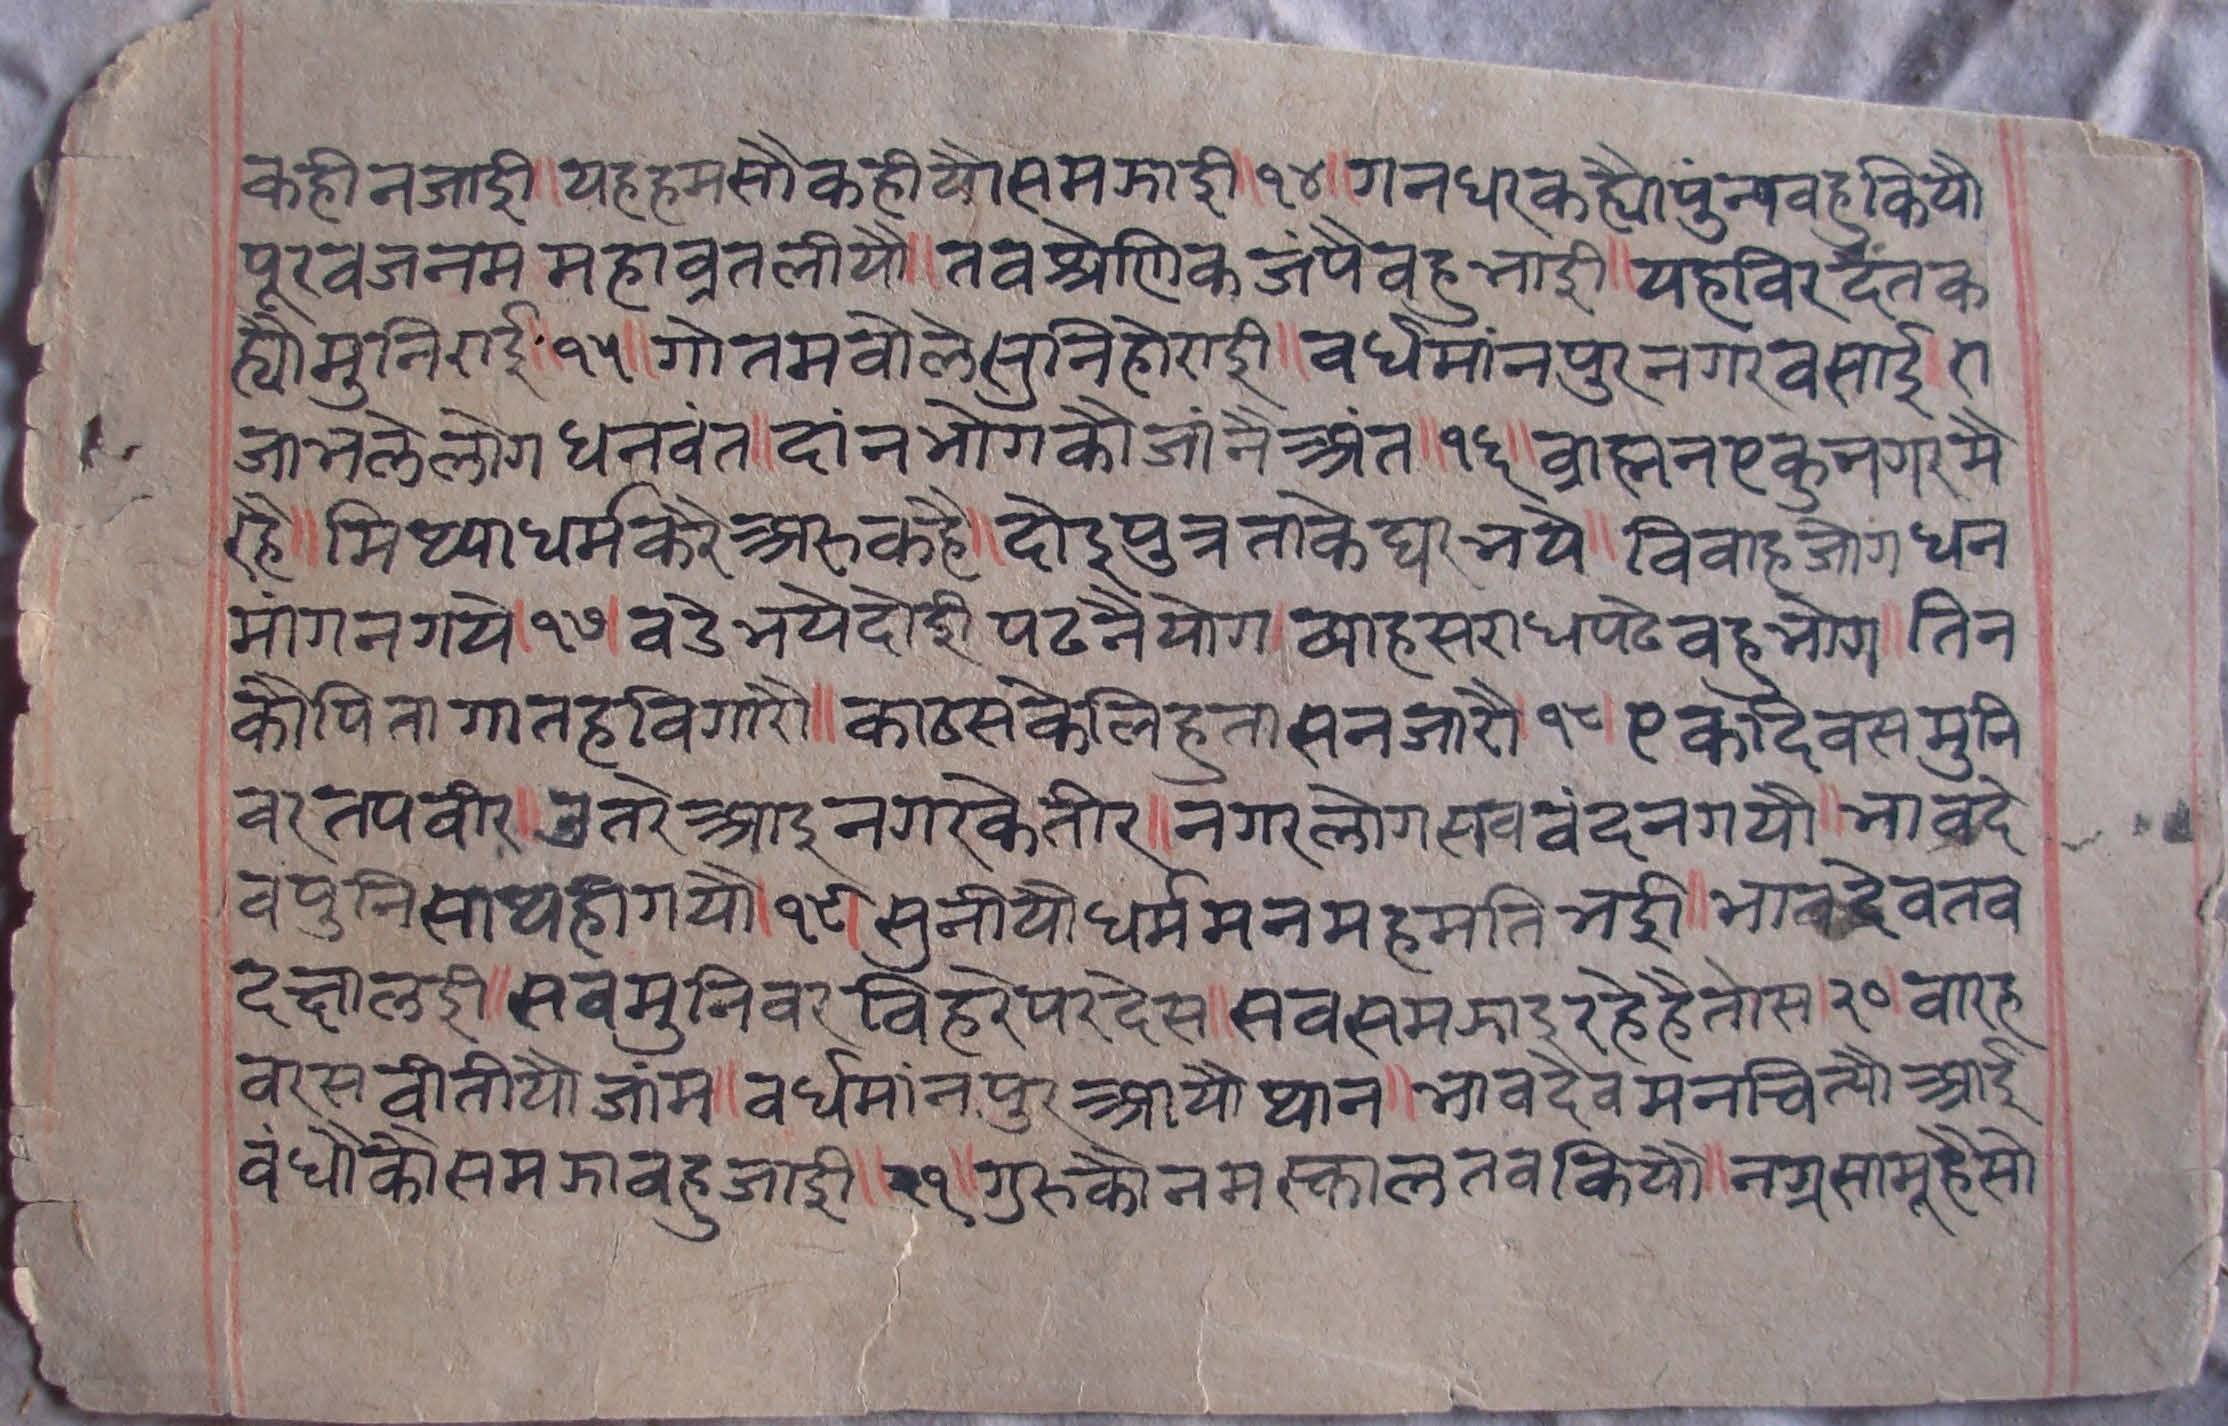 कहीनजाइी॥यहहमसौकहीयौसमझाइी॥१४॥गनधरकह्यौपुंन्यवहुकियौ
पूरवजनम महाव्रतलीयौ॥तवश्रेणिकजंपैवहुभाइी॥यहविरदंतक
ह्यौमुनिराई॥१५॥गोतमवोलेसुनिहोराइी॥वर्धमांनपुरनगरवसाई॥रा
जाभलेलोगधनवंत॥दांनभोगकौजांनैअंत॥१६॥व्राह्मनएकुनगरमै
रहै॥मिथ्याधर्मकरैअरुकहै॥दोइपुत्रताकेघरभये॥विवाहजोगधन
मांगनगये।१७।वडेभयेदोइीपढनैयोग।व्याहसराधपढेवहुभोग॥तिन
कौपितागातहविगारौ॥काठसकेलिहुतासनजारौ१८।एकदिवसमुनि
वरतपवीर॥उतरेआइनगरकेतीर॥नगरलोगसववंदनगयौ॥भावदे
वपुनिसाथहीगयौ।१९।सुनीयौधर्ममनमहमतिभइी॥भावदेवतव
दक्षालइी॥सवमुनिवरविहरेपरदेस॥सवसमझाइरहेहैतोस।२०।वारह
वरसवीतीयौजांम॥वर्धमांनपुरआयौथान॥भावदेवमनचिंत्यौआई
वंधौकौसमझावहुजाइी॥२१॥गुरुकौनमस्कालतवकियौ॥नग्रसामूहैसो